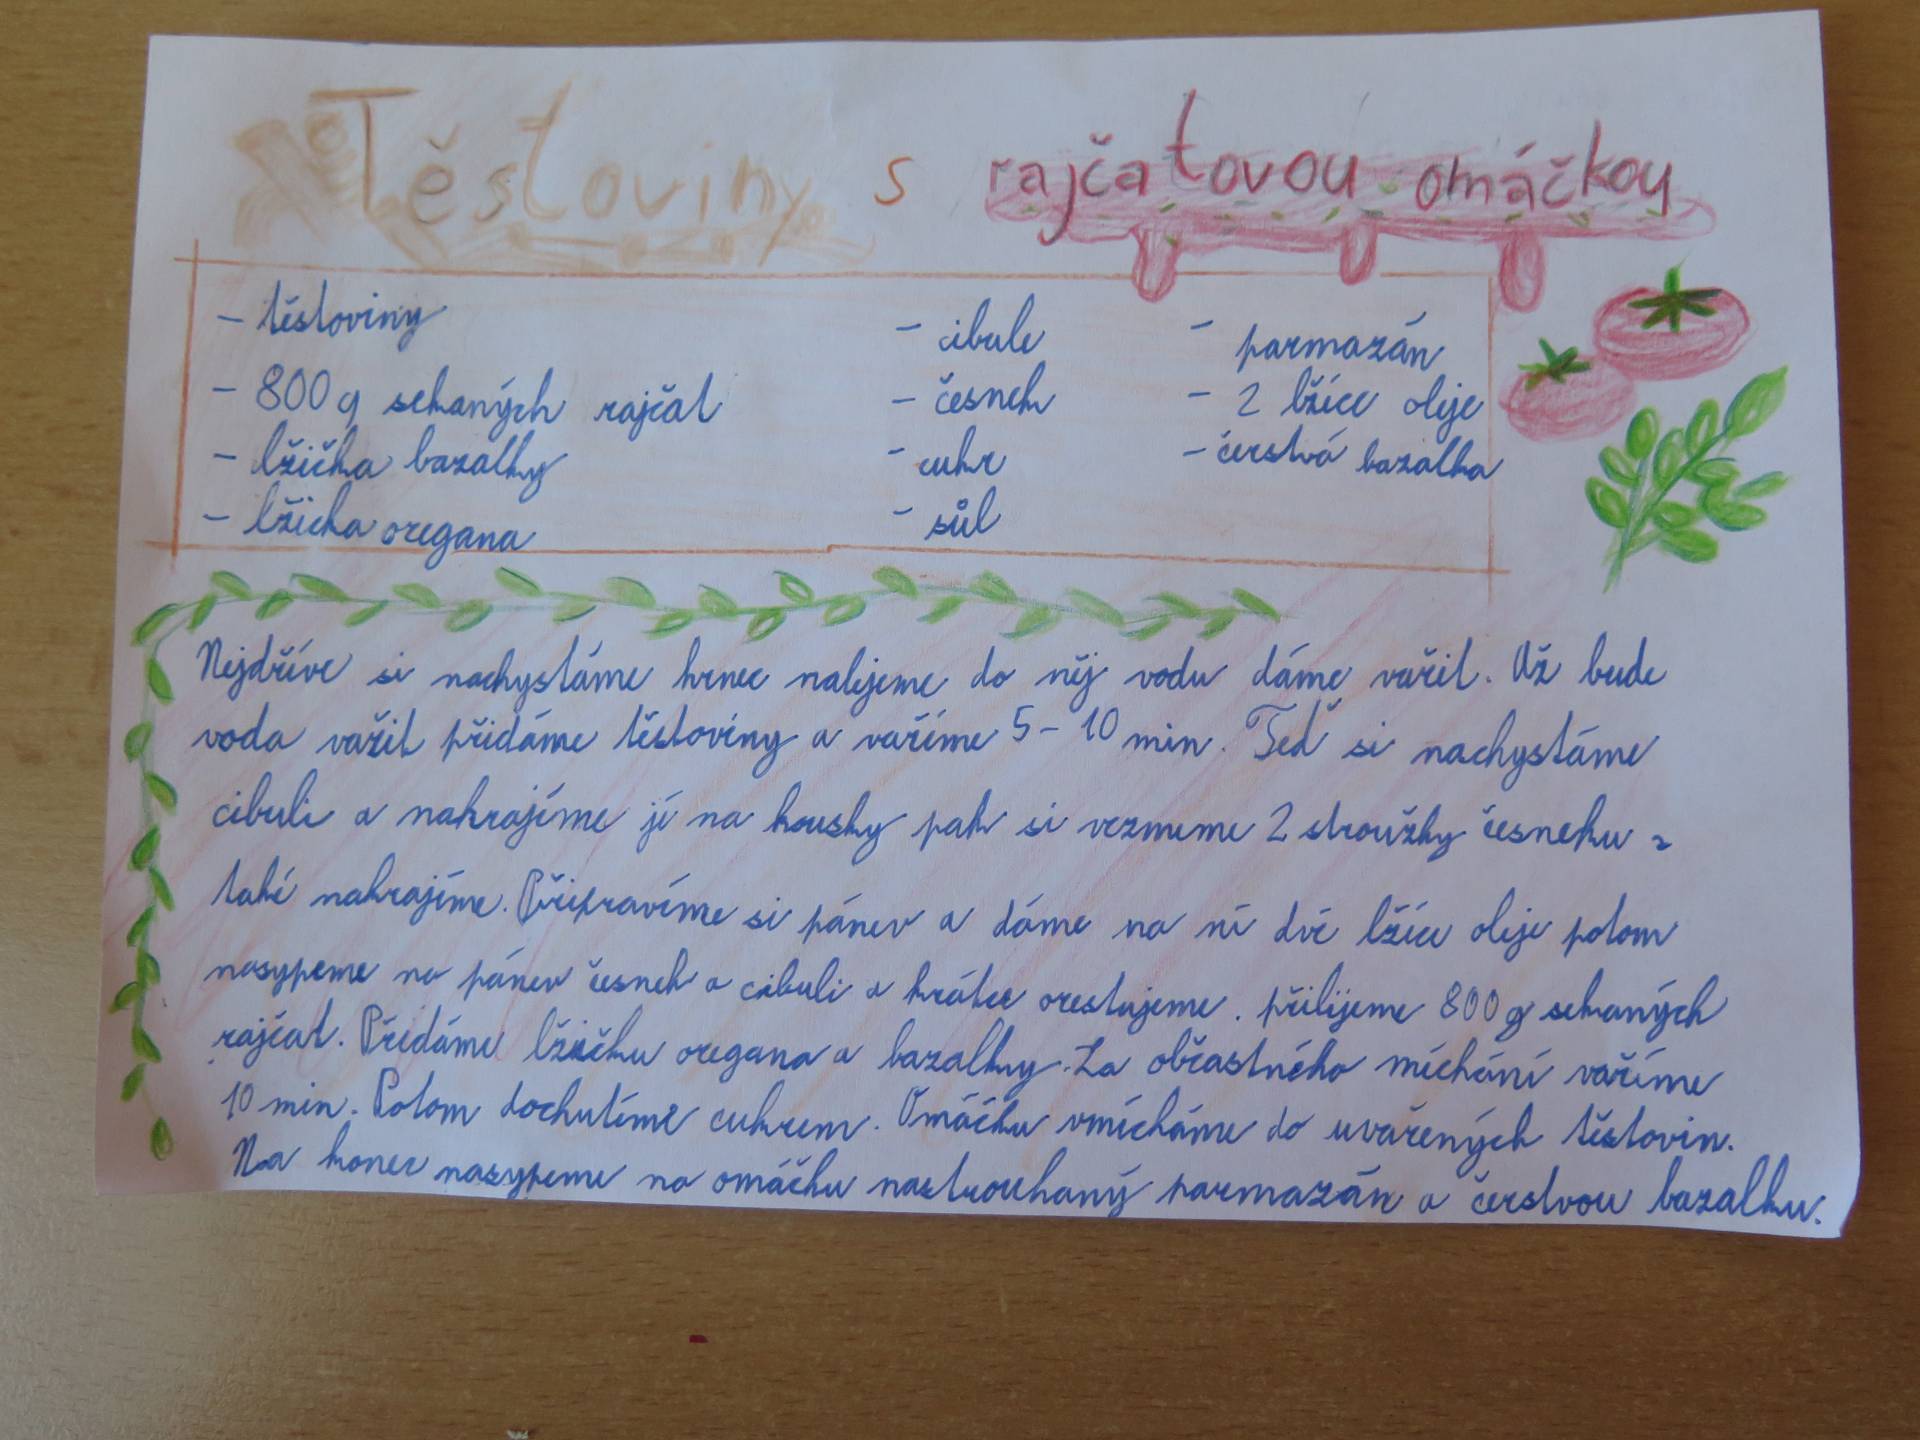 Těstoviny s rajčatovou omáčkou
- těstoviny
- 800 g sekaných rajčat
- lžička bazalky
- lžička oregana
- cibule
- česnek
- cukr
- sůl
- parmazán
- 2 lžíce oleje
- čerstvá bazalka
Nejdříve si nachystáme hrnec nalijeme do něj vodu dáme vařit. Až bude
voda vařit přidáme těstoviny a vaříme 5-10 min. Teď si nachystáme
cibuli a nakrajíme jí na kousky pak si vezmeme 2 stroužky česneku a
také nakrajíme. Připravíme si pánev a dáme na ní dvě lžíce oleje potom
nasypeme na pánev česnek a cibuli a krátce orestujeme. přilijeme 800 g sekaných
rajčat. Přidáme lžičku oregana a bazalky. Za občastného míchání vaříme
10 min. Potom dochutíme cukrem. Omáčku vmícháme do uvařených těstovin.
Na konec nasypeme na omáčku nastrouhaný parmazán a čerstvou bazalku.